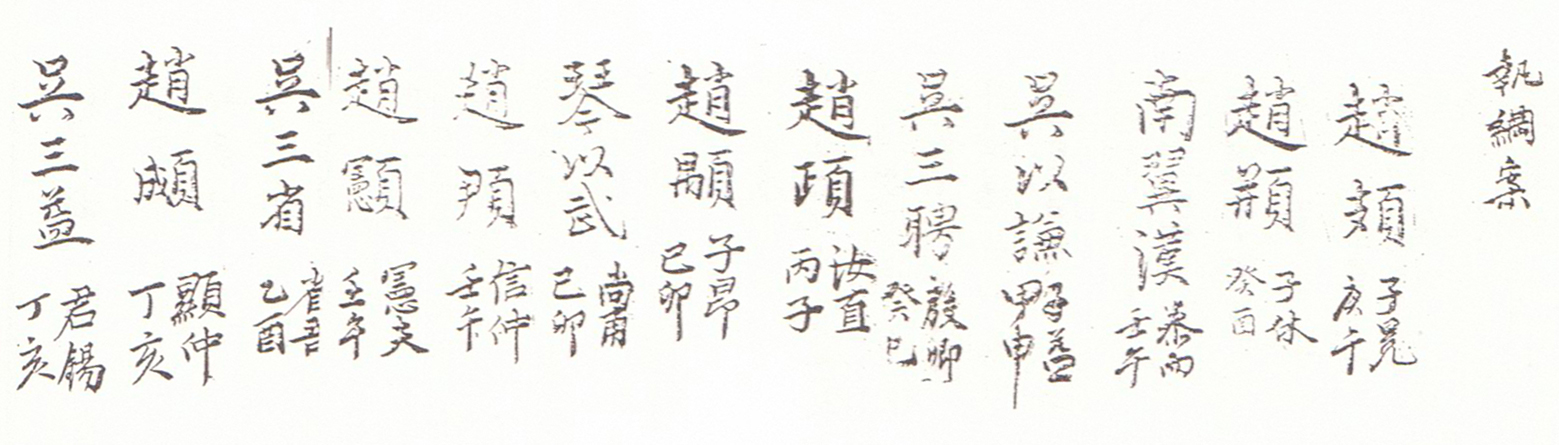 執綱案
趙頍 子冕 庚午
趙頩 子休 癸酉
南翼漢 泰雨 壬午
吳以謙 子益 甲申
吳三聘 殷卿 癸巳
趙頙 汝直 丙子
趙顒 子昂 己卯
琴以武 尚甫 己卯
趙頵 信仲 壬午
趙 憲夫 壬午
吳三省 省吾 乙酉
趙 顯仲 丁亥
吳三益 君錫 丁亥